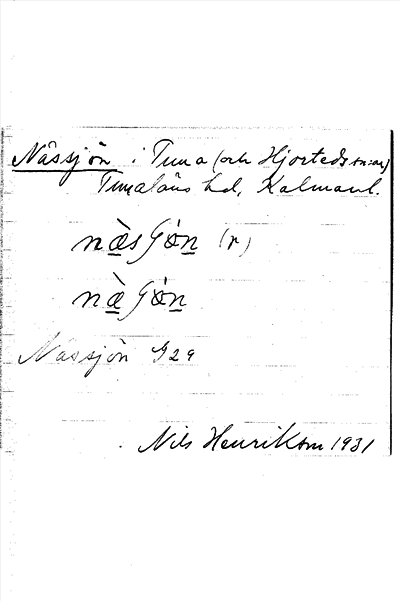 Nässjön i Tuna (och Hjorteds sn:ar)
Tunaläns hd, Kalmarl.
næ̀sʃón (r)
næ̀ʃón
Nässjön G29
Nils Henrikson 1931